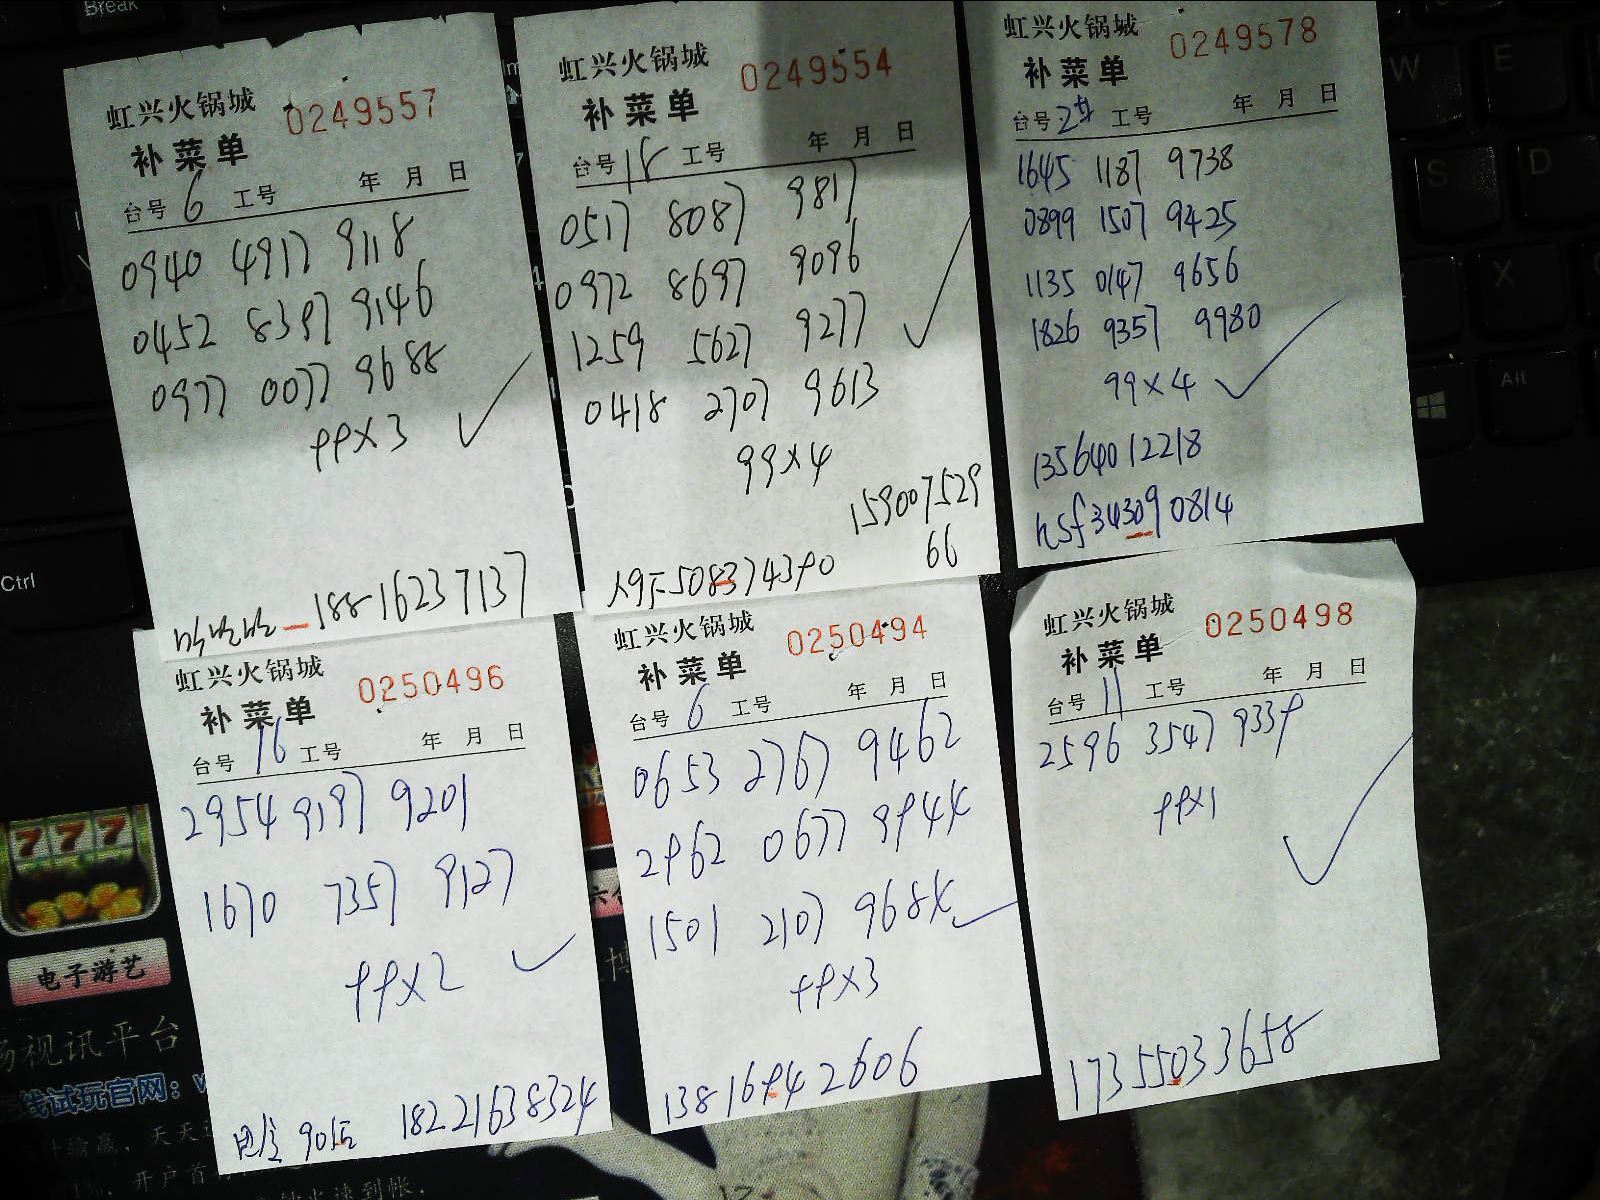 Break
虹兴火锅城 0249557
补菜单
台号 6 工号 年 月 日
0940 4917 9118
0452 8397 9146
0977 0077 9688
99×3
18816237137
虹兴火锅城 0249554
补菜单
台号 18 工号 年 月 日
0517 8087 9817
0972 8697 9096
1259 5627 9277
0418 2707 9613
99×4
159007529
66
508374390
虹兴火锅城 0249578
补菜单
台号 2 工号 年 月 日
1645 1187 9738
0899 1507 9425
1135 0147 9656
1826 9357 9980
99×4
13564012218
hsf343090814
虹兴火锅城 0250496
补菜单
台号 16 工号 年 月 日
2954 9197 9201
1670 7357 9127
99×2
90后 18221638324
虹兴火锅城 0250494
补菜单
台号 6 工号 年 月 日
0653 2767 9462
2962 0677 9944
1501 2107 9684
99×3
13816942606
虹兴火锅城 0250498
补菜单
台号 11 工号 年 月 日
2596 3547 9339
99×1
17355033658
W E
S D
X
Alt
Ctrl
777
电子游艺
视讯平台
线试玩官网：